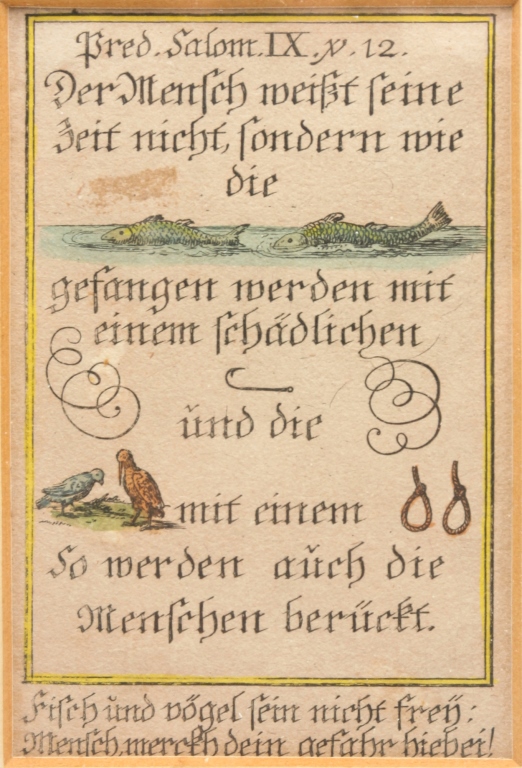 Pred. Salom. IX. v. 12.
Der Mensch weißt seine
Zeit nicht, sondern wie
die
gefangen werden mit
einem schädlichen
und die
mit einem
So werden auch die
Menschen berückt.
Fisch und vögel sein nicht freÿ:
Mensch, merckh dein gefahr hiebei!